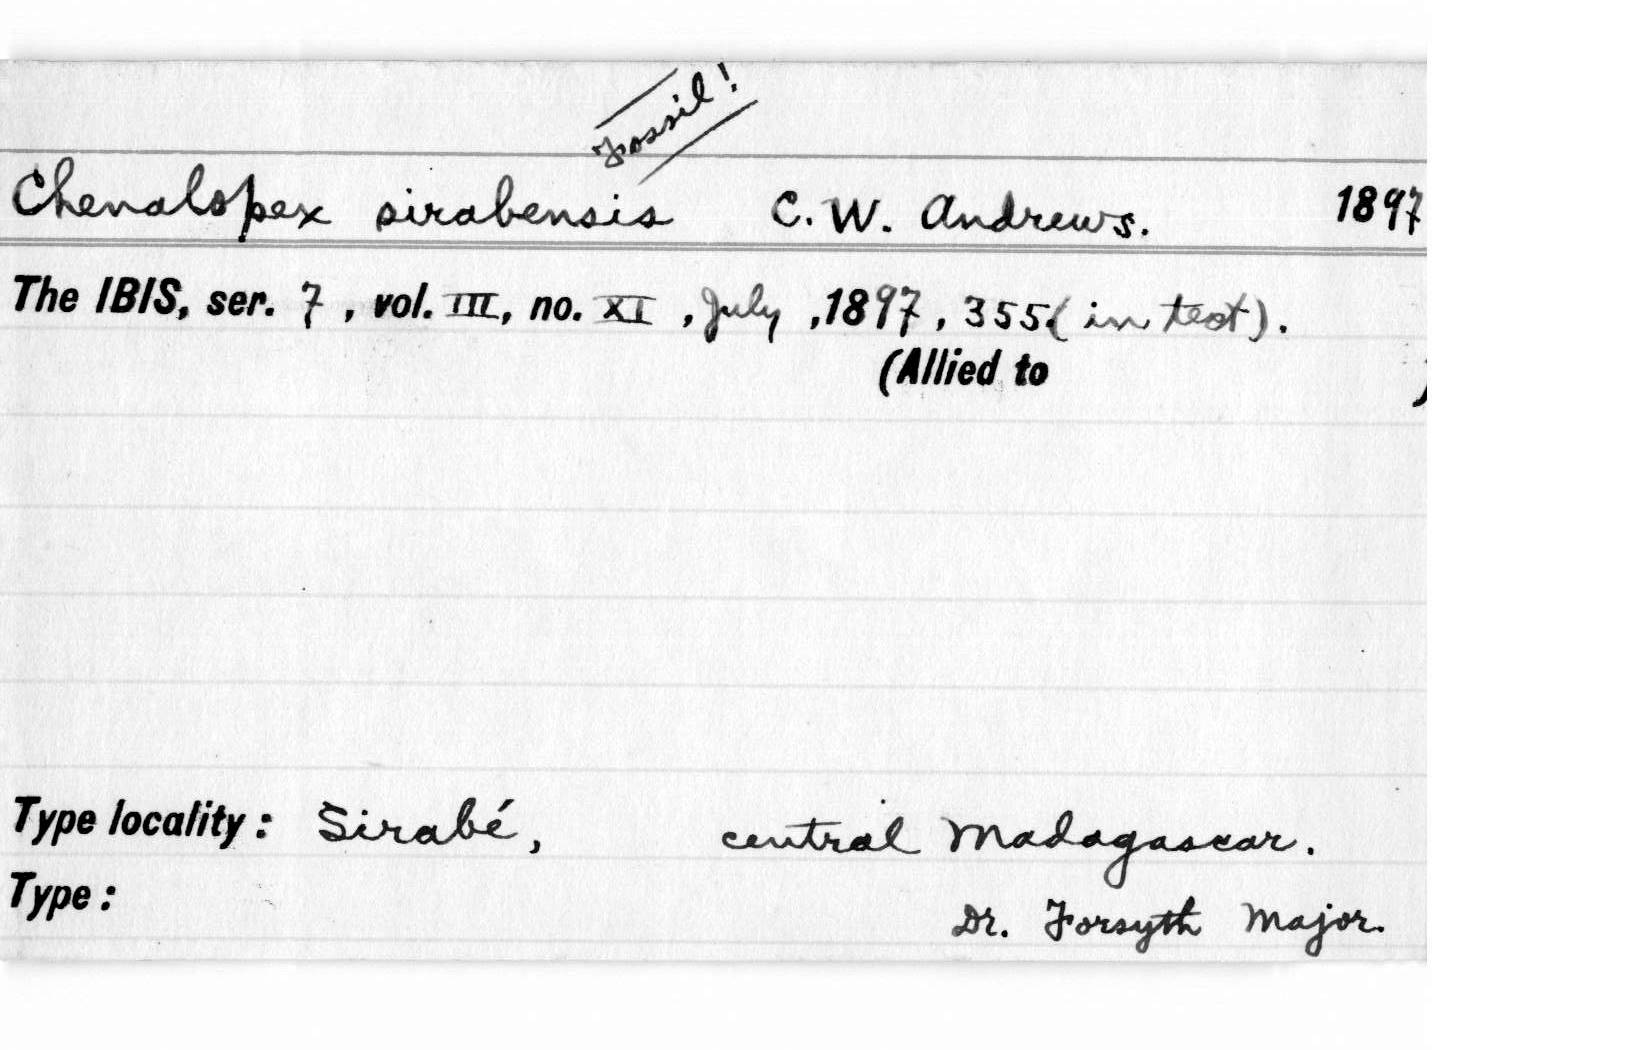 Fossil!
Chenalopex sirabensis C. W. Andrews. 1897
The IBIS, ser. 7, vol. III, no. XI, July, 1897, 355 (in text).
(Allied to )
Type locality: Sirabé, central Madagascar.
Type:
Dr. Forsyth Major.